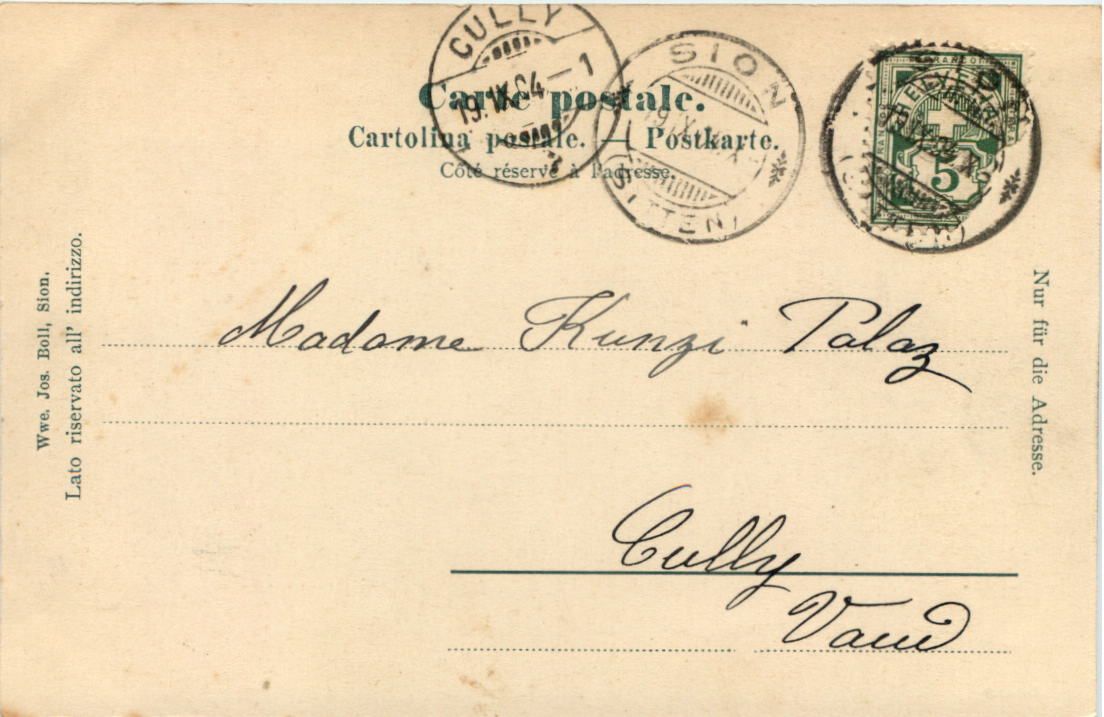 CULLY
19.IX.04 – 1
SION
(SITTEN)
SION
(SITTEN)
FRANCO
HELVETIA
5
Carte postale.
Cartolina postale. — Postkarte.
Côté réservé à l'adresse.
Wwe. Jos. Boll, Sion.
Lato riservato all' indirizzo.
Nur für die Adresse.
Madame Kunzi Palaz
Cully
Vaud